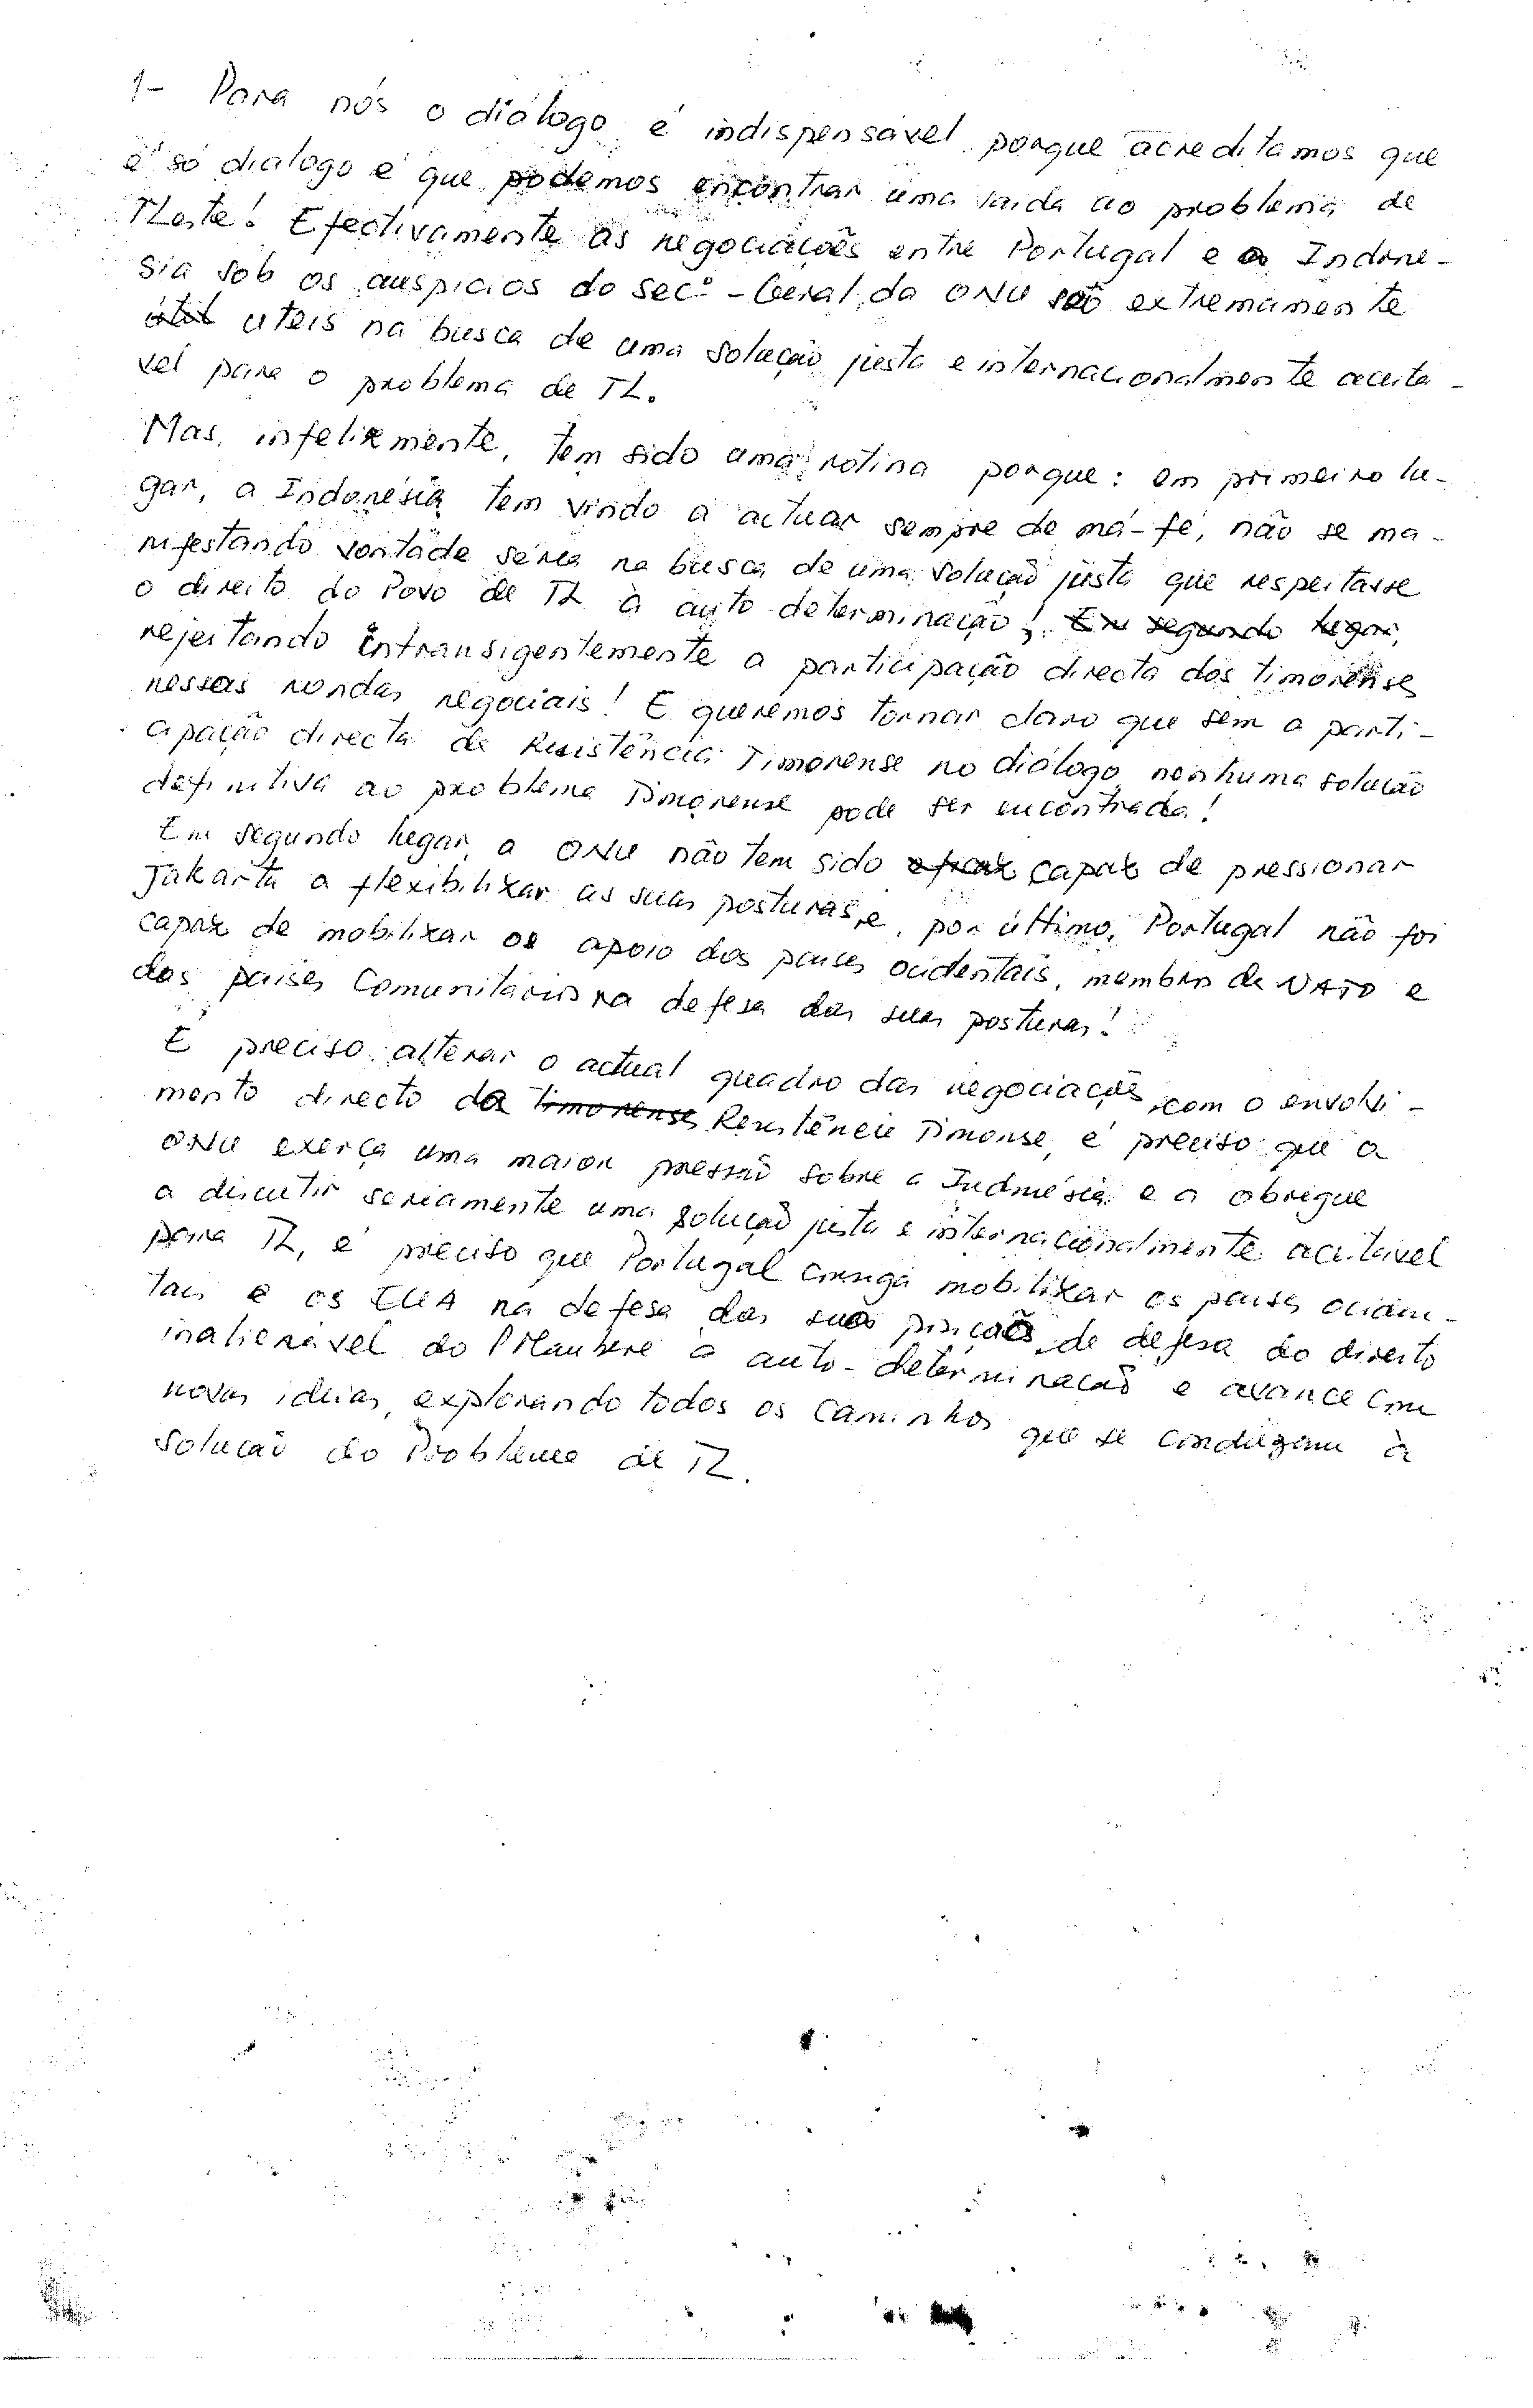 1- Para nós o diálogo é indispensável porque acreditamos que
é só dialogo é que podemos encontrar uma saida ao problema de
TLeste! Efectivamente as negociações entre Portugal e a Indoné-
sia sob os auspicios do Secº-Geral da ONU são extremamente
útil uteis na busca de uma solução justa e internacionalmente aceitá-
vel para o problema de TL.
Mas, infelizmente, tem sido uma rotina porque: em primeiro lu-
gar, a Indonésia tem vindo a actuar sempre de má-fé, não se ma-
nifestando vontade séria na busca de uma solução justa que respeitasse
o direito do Povo de TL à auto-determinação! Em segundo lugar,
rejeitando intransigentemente a participação directa dos timorenses
nessas rondas negociais! E queremos tornar claro que sem a parti-
cipação directa da Resistência Timorense no diálogo, nenhuma solução
definitiva ao problema Timorense pode ser encontrada!
Em segundo lugar, a ONU não tem sido capaz de pressionar
Jakarta a flexibilizar as suas posturas e, por último, Portugal não foi
capaz de mobilizar o apoio dos paises ocidentais, membros da NATO e
dos paises Comunitários na defesa das suas posturas!
É preciso alterar o actual quadro das negociações, com o envolvi-
mento directo da timorenses Resistência Timorense, é preciso que a
ONU exerça uma maior pressão sobre a Indonésia e a obrigue
a discutir seriamente uma solução justa e internacionalmente aceitável
para TL, é preciso que Portugal consiga mobilizar os paises ociden-
tais e os EUA na defesa das suas posições de defesa do direito
inalienável do PMaubere à auto-determinação e avance com
novas ideias, explorando todos os caminhos que se conduzam à
solução do Problema de TL.